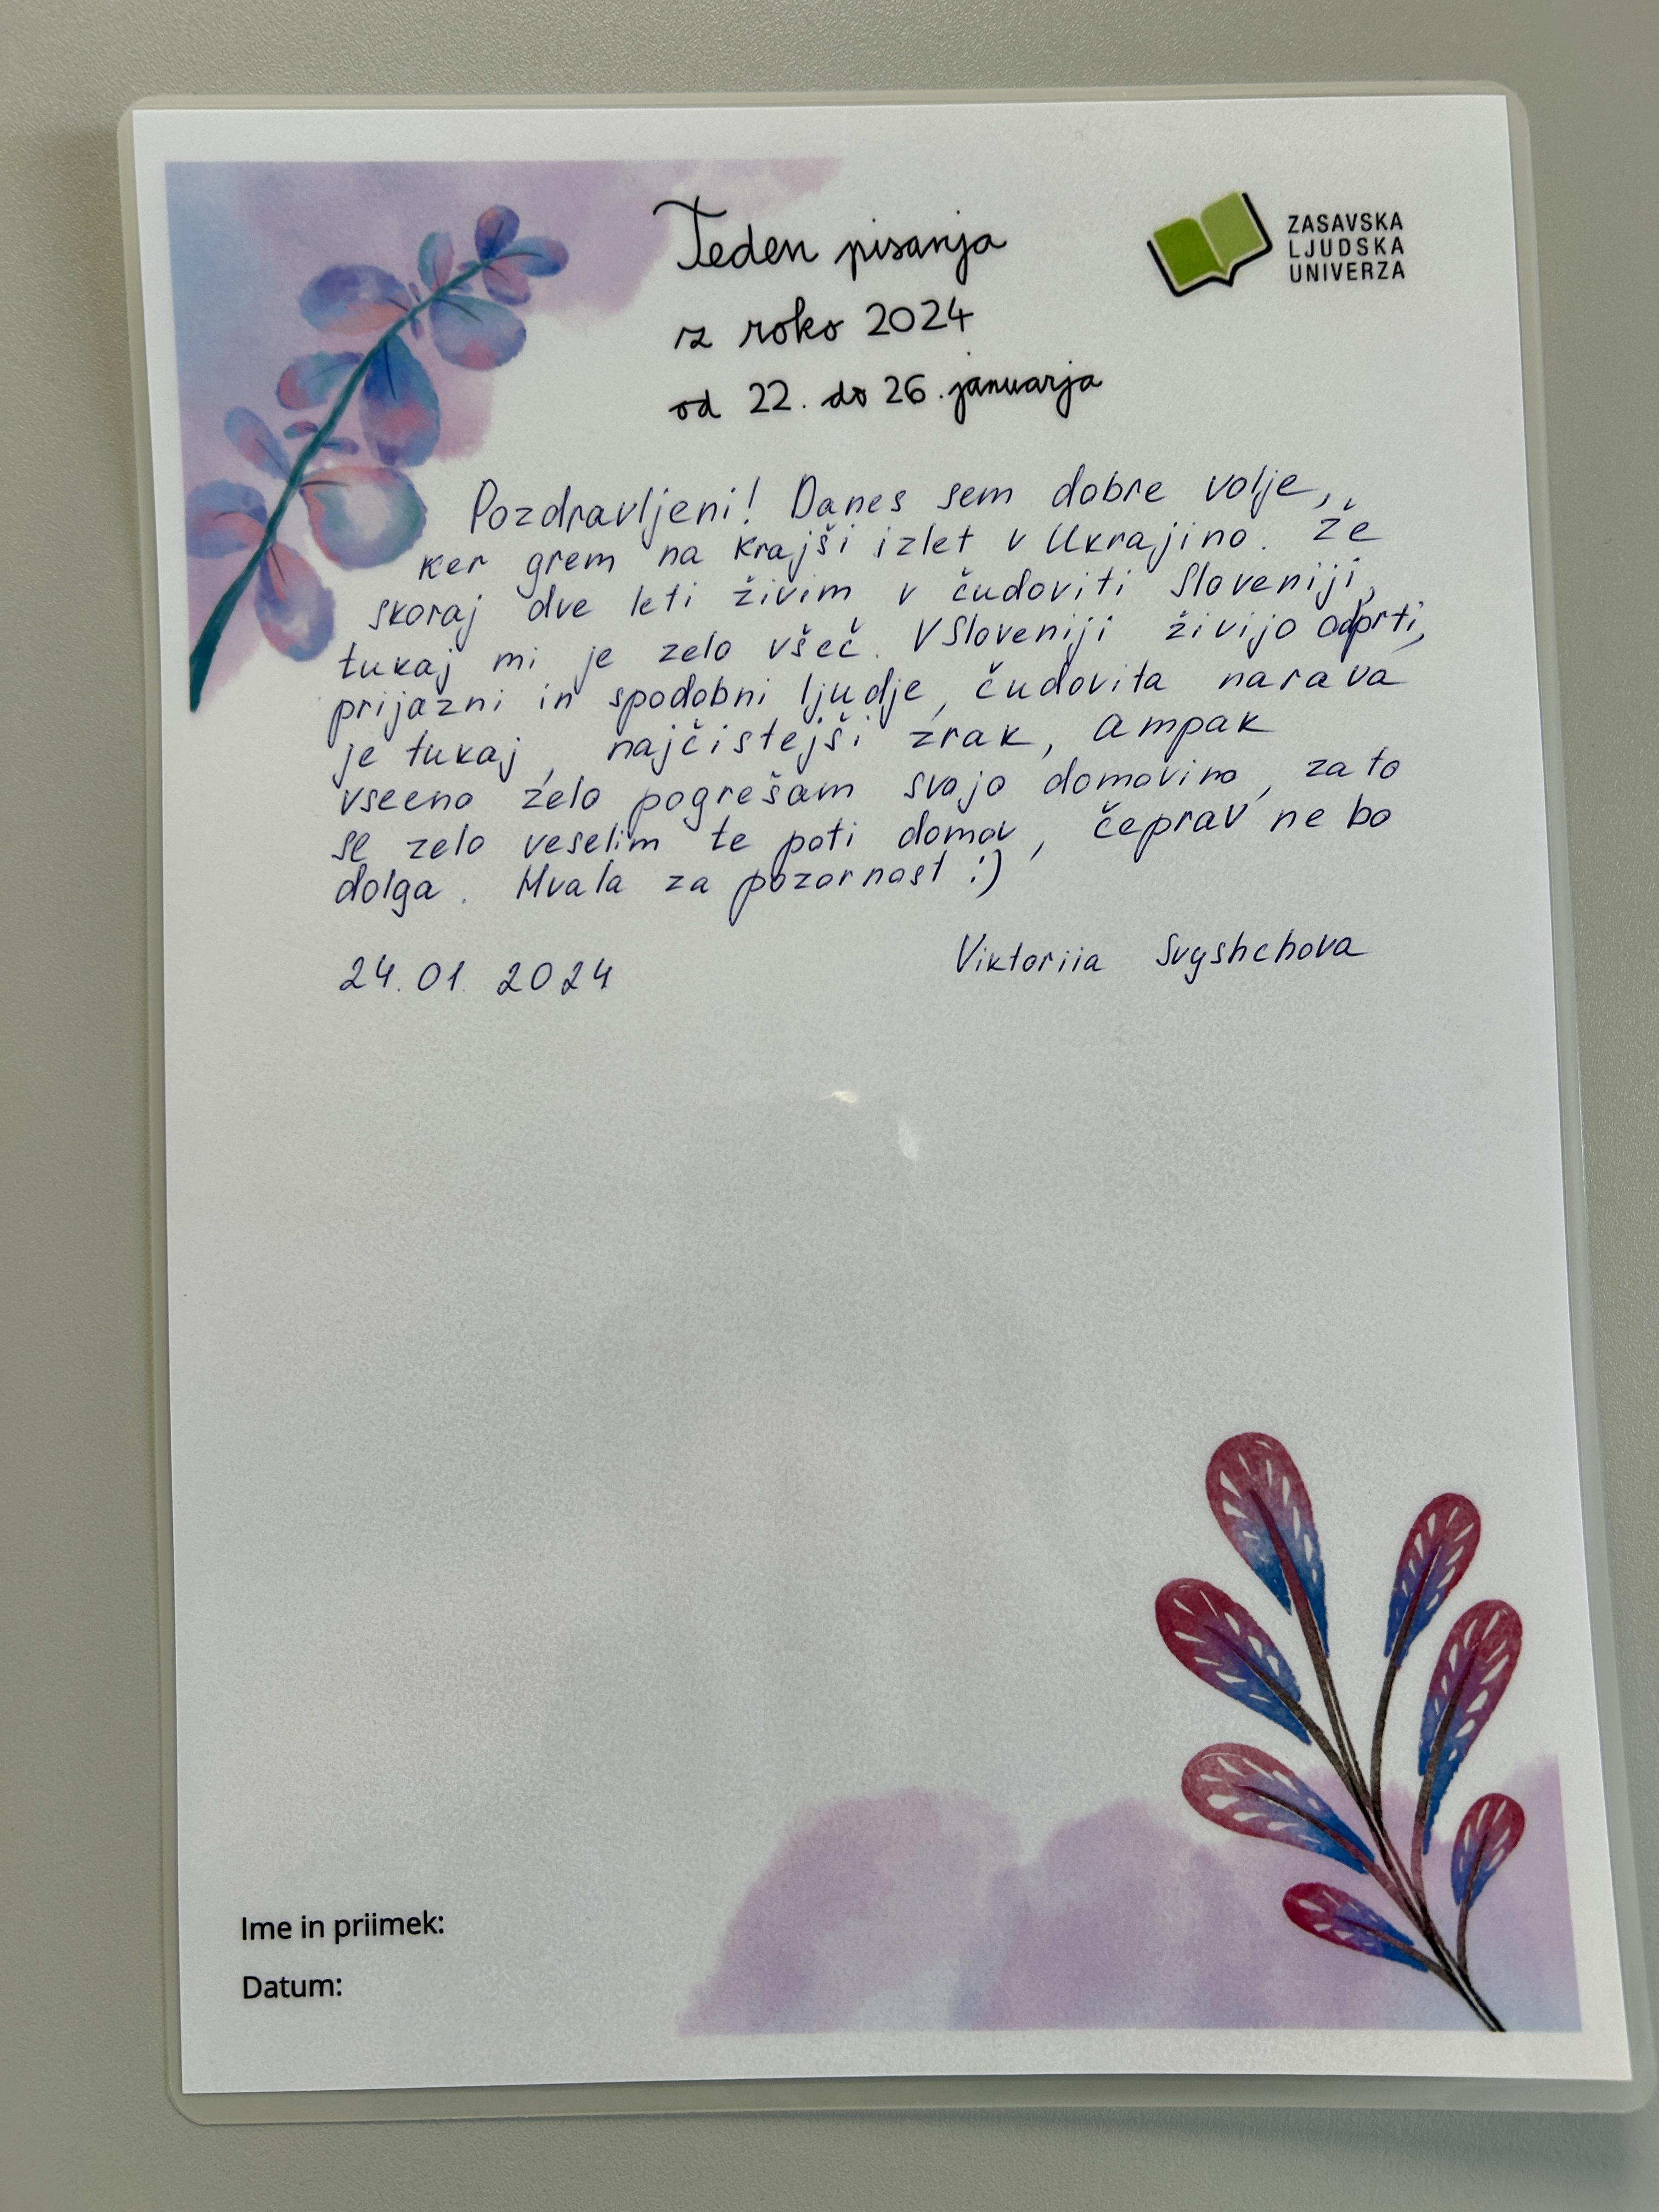 Teden pisanja
z roko 2024
od 22. do 26. januarja
ZASAVSKA
LJUDSKA
UNIVERZA
Pozdravljeni! Danes sem dobre volje,
ker grem na krajši izlet v Ukrajino. Že
skoraj dve leti živim v čudoviti Sloveniji,
tukaj mi je zelo všeč. V Sloveniji živijo odprti,
prijazni in spodobni ljudje, čudovita narava
je tukaj, najčistejši zrak, ampak
vseeno zelo pogrešam svojo domovino, zato
se zelo veselim te poti domov, čeprav ne bo
dolga. Hvala za pozornost :)
24.01.2024 Viktoriia Svyshchova
Ime in priimek:
Datum: